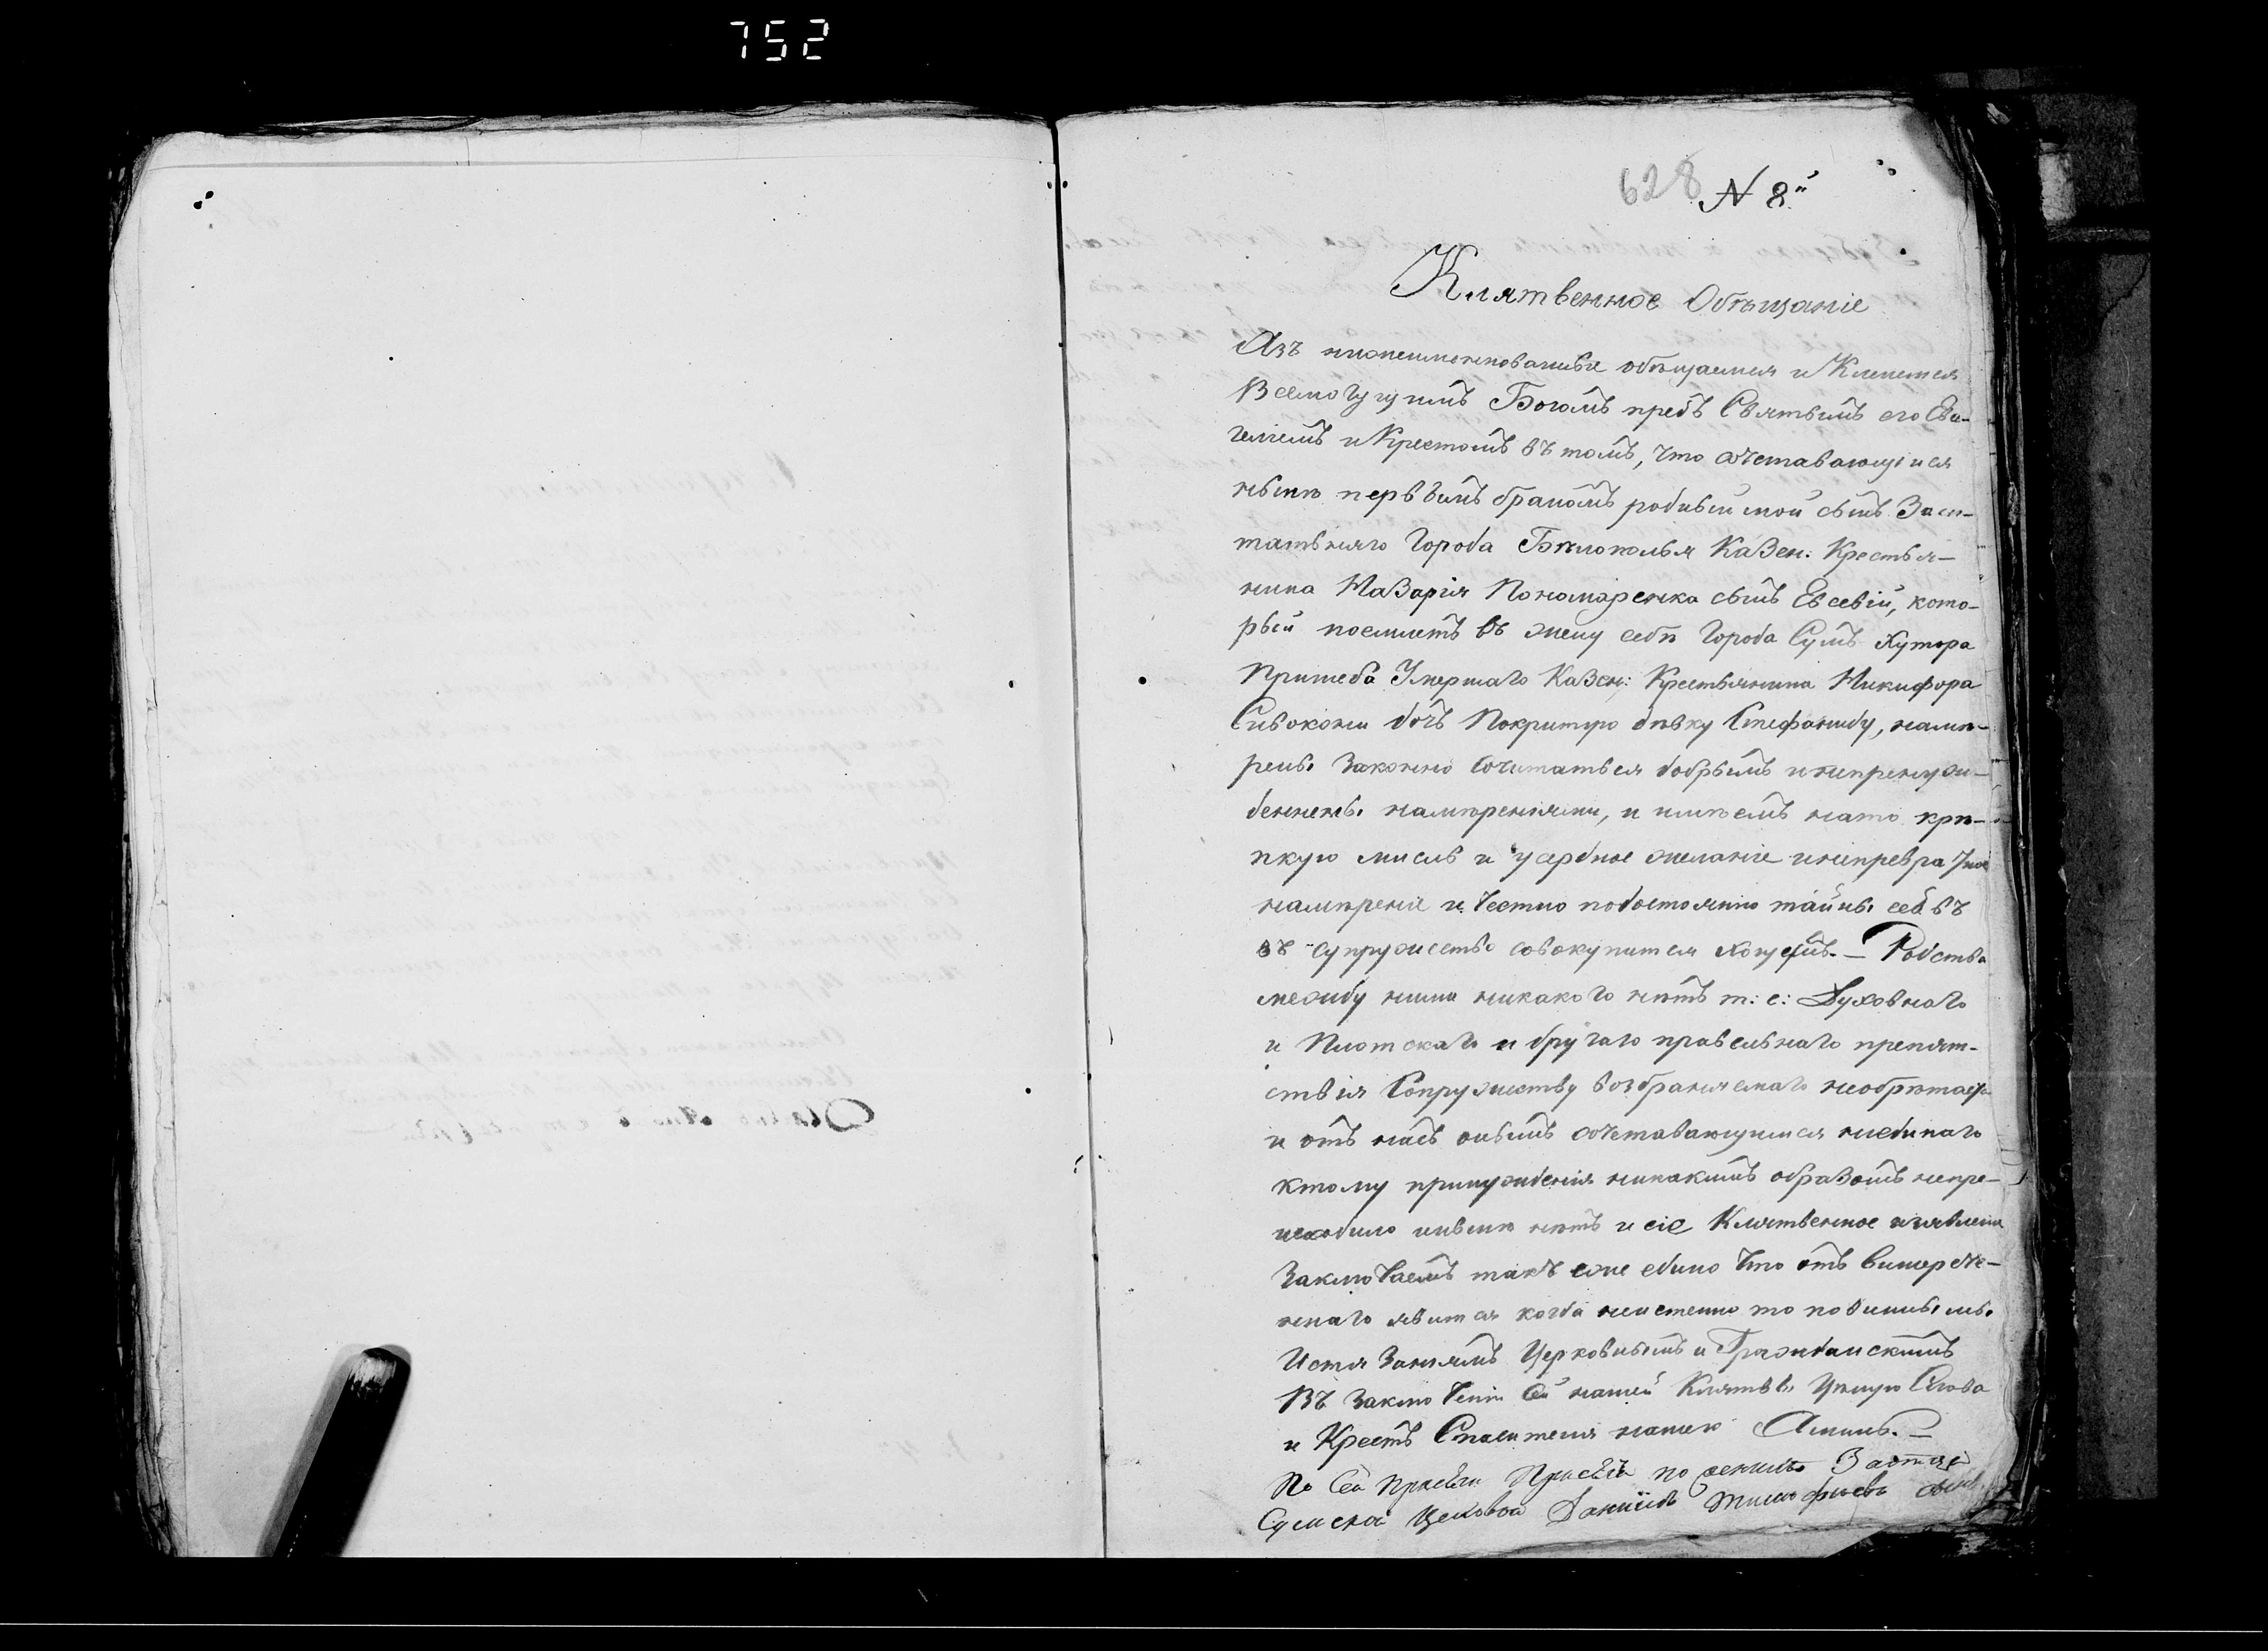 752
628 N 8й
Клятвенное Обѣщаніе
Азъ нижеименнованныя обѣщаемся и Кленемся
Всемогущимъ Богомъ предъ Святымъ его Ева-
геліемъ и Крестомъ въ томъ, что сочетавающійся
нынѣ первымъ бракомъ родный мой сынъ Заш-
татьняго Города Бѣлополья Казен: Крестья-
нина Назарія Пономаренка сынъ Евсевій, кото-
рый поемлетъ въ жену себѣ Города Сумъ Хутора
Пришеба Умершаго Казен: Крестьянина Никифора
Сивоконя дочъ Покритую дѣвку Стефаниду, намѣ-
рены Законно Сочитаться добрымъ инепренужи-
деннены намѣреніями, и имѣемъ нато крѣ-
пкую мисль и усердное желаніе инепревратное
намѣреніе и Честно подостоянію тайны сея въ
въ супружество совокупится хощемъ. — Родства
между ними никакого нѣтъ т: е: Духовнаго
и Плотскаго и другаго правельнаго препят-
ствія Сопружеству возбраняемаго необрѣтается
и отъ насъ онымъ сочетавающимся ниединаго
ктому принужденія никакимъ образомъ непре-
исходило инынѣ нѣтъ и сіе Клятвенное изявленіе
Заключаемъ такъ еже едино Что отъ вишерече-
ннаго явится когда неистенно то подишны мы
Истязаніямъ Церковнымъ и Гражданскимъ
Въ Заключеніи Сей нашей Клятвы Цѣлую Слова
и Крестъ Спасителя нашек Аминь. —
По Сей присяги Присягал по женилъ
Сумской Цеховой Даніилъ Тимофиевъ сынъ